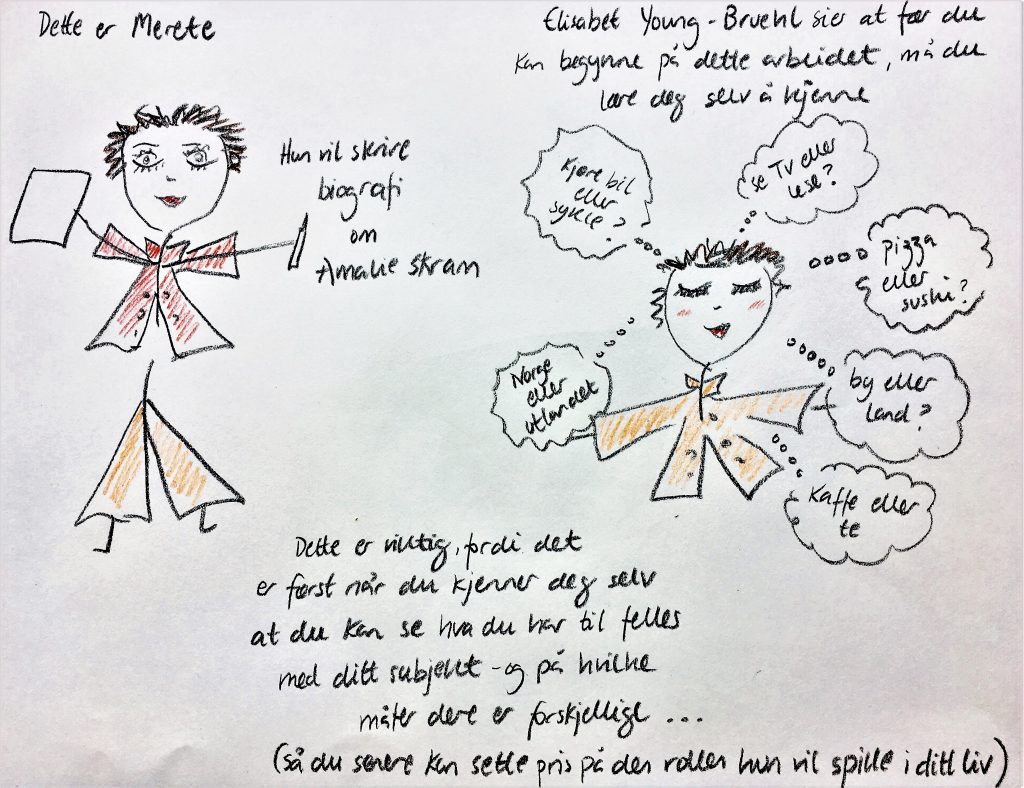 Dette er Merete
Hun vil skrive
biografi
om
Amalie Skram
Elisabet Young-Bruehl sier at før du
kan begynne på dette arbeidet, må du
lære deg selv å kjenne
Kjøre bil
eller
sykle?
se TV eller
lese?
pizza
eller
sushi?
Norge
eller
utlandet
by eller
land?
Kaffe eller
te
Dette er viktig, fordi det
er først når du kjenner deg selv
at du kan se hva du har til felles
med ditt subjekt - og på hvilke
måter dere er forskjellige ...
(så du senere kan sette pris på den rollen hun vil spille i ditt liv)